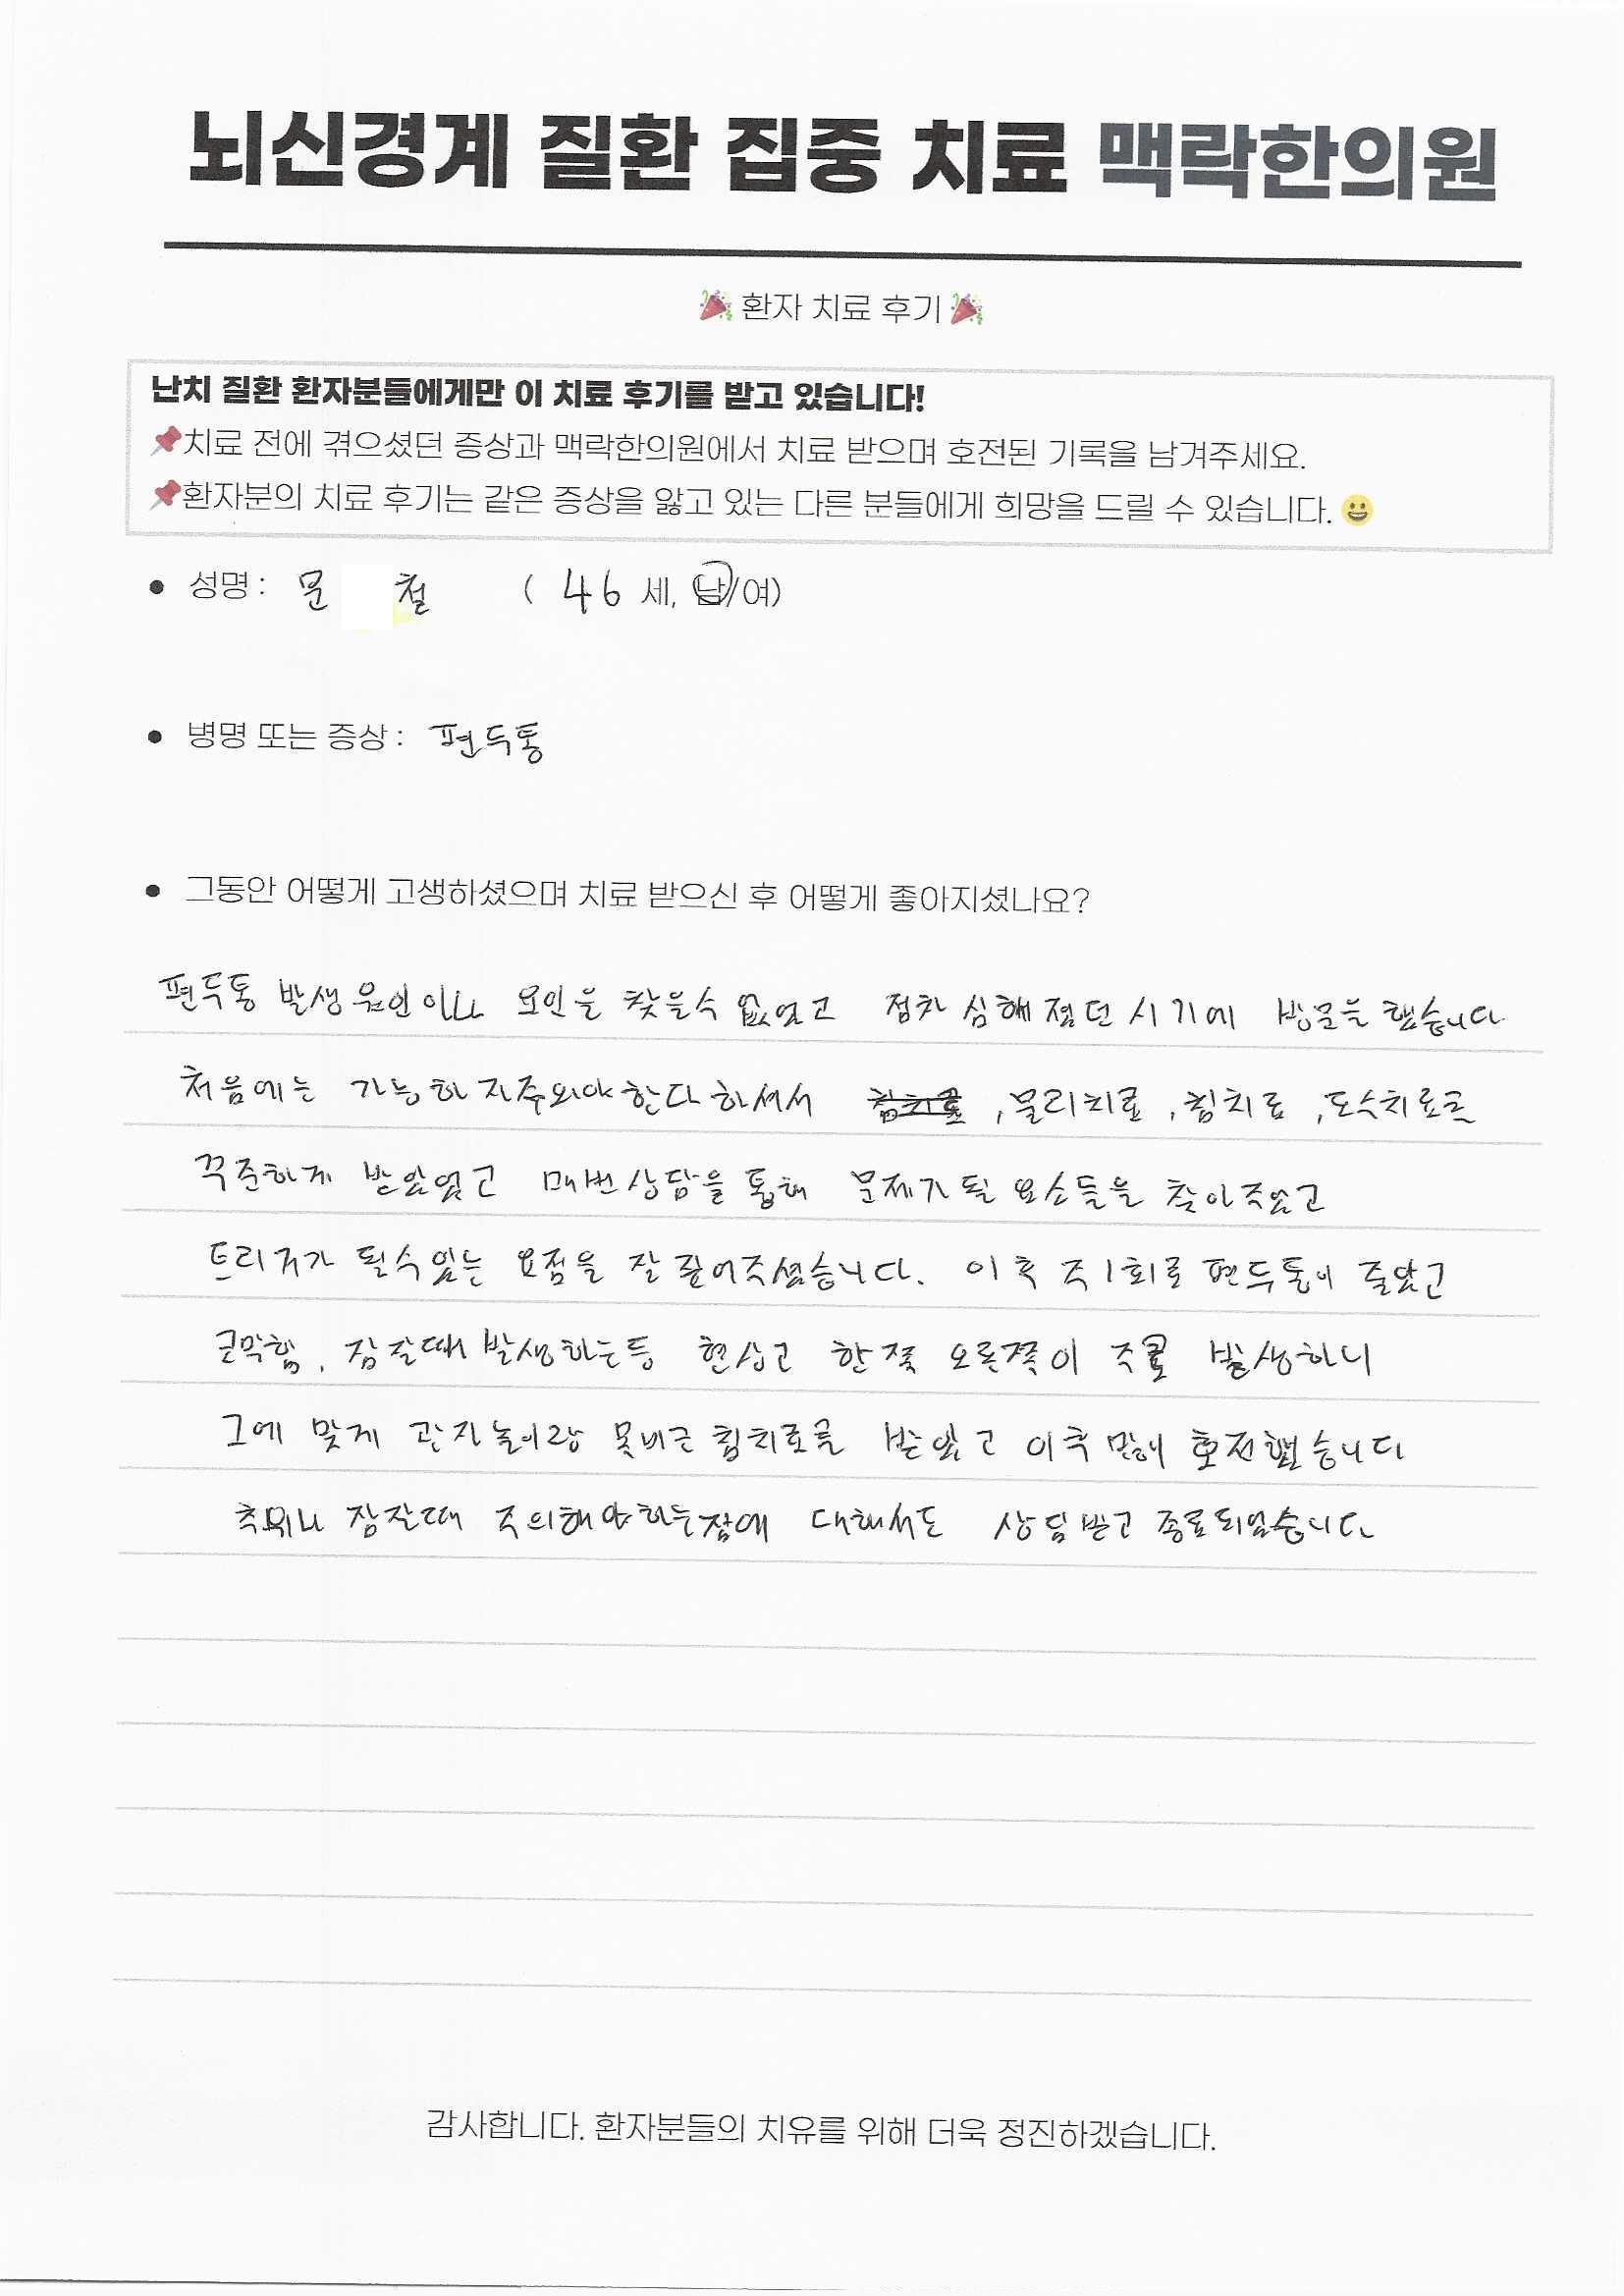 뇌신경계 질환 집중 치료 맥락한의원
🎉 환자 치료 후기 🎉
난치 질환 환자분들에게만 이 치료 후기를 받고 있습니다!
📌치료 전에 겪으셨던 증상과 맥락한의원에서 치료 받으며 호전된 기록을 남겨주세요.
📌환자분의 치료 후기는 같은 증상을 앓고 있는 다른 분들에게 희망을 드릴 수 있습니다. 😀
• 성명 : 문 철 ( 46 세, 남/여)
• 병명 또는 증상 : 편두통
• 그동안 어떻게 고생하셨으며 치료 받으신 후 어떻게 좋아지셨나요?
편두통 발생 원인이나 요인을 찾을수 없었고 점차 심해졌던 시기에 방문을 했습니다
처음에는 가능한 자주와야한다하셔서 침치료 , 물리치료 , 침치료 , 도수치료를
꾸준하게 받았었고 매번 상담을 통해 문제가 될 요소들을 찾아주었고
트리거가 될수있는 요점을 잘 짚어주셨습니다. 이후 주1회로 편두통이 줄었고
코막힘, 잠잘때 발생하는등 현상고 한쪽 오른쪽이 주로 발생하니
그에 맞게 관자놀이랑 목비근 침치료를 받았고 이후 많이 호전했습니다
추위나 잠잘때 주의해야하는점에 대해서도 상담받고 종료되었습니다.
감사합니다. 환자분들의 치유를 위해 더욱 정진하겠습니다.